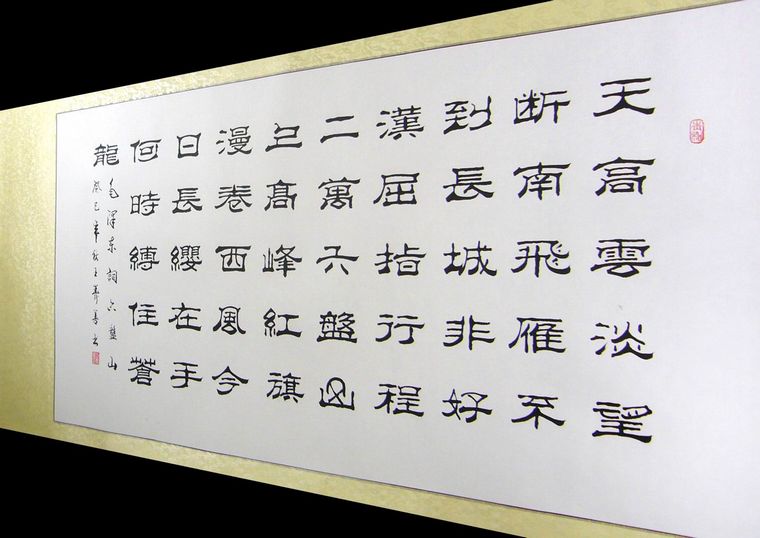 天高雲淡望
断南飛雁不
到長城非好
漢屈指行程
二萬六盤山
上高峰紅旗
漫卷西風今
日長纓在手
何時縛住蒼
龍
毛澤東詞六盤山
癸巳年秋王